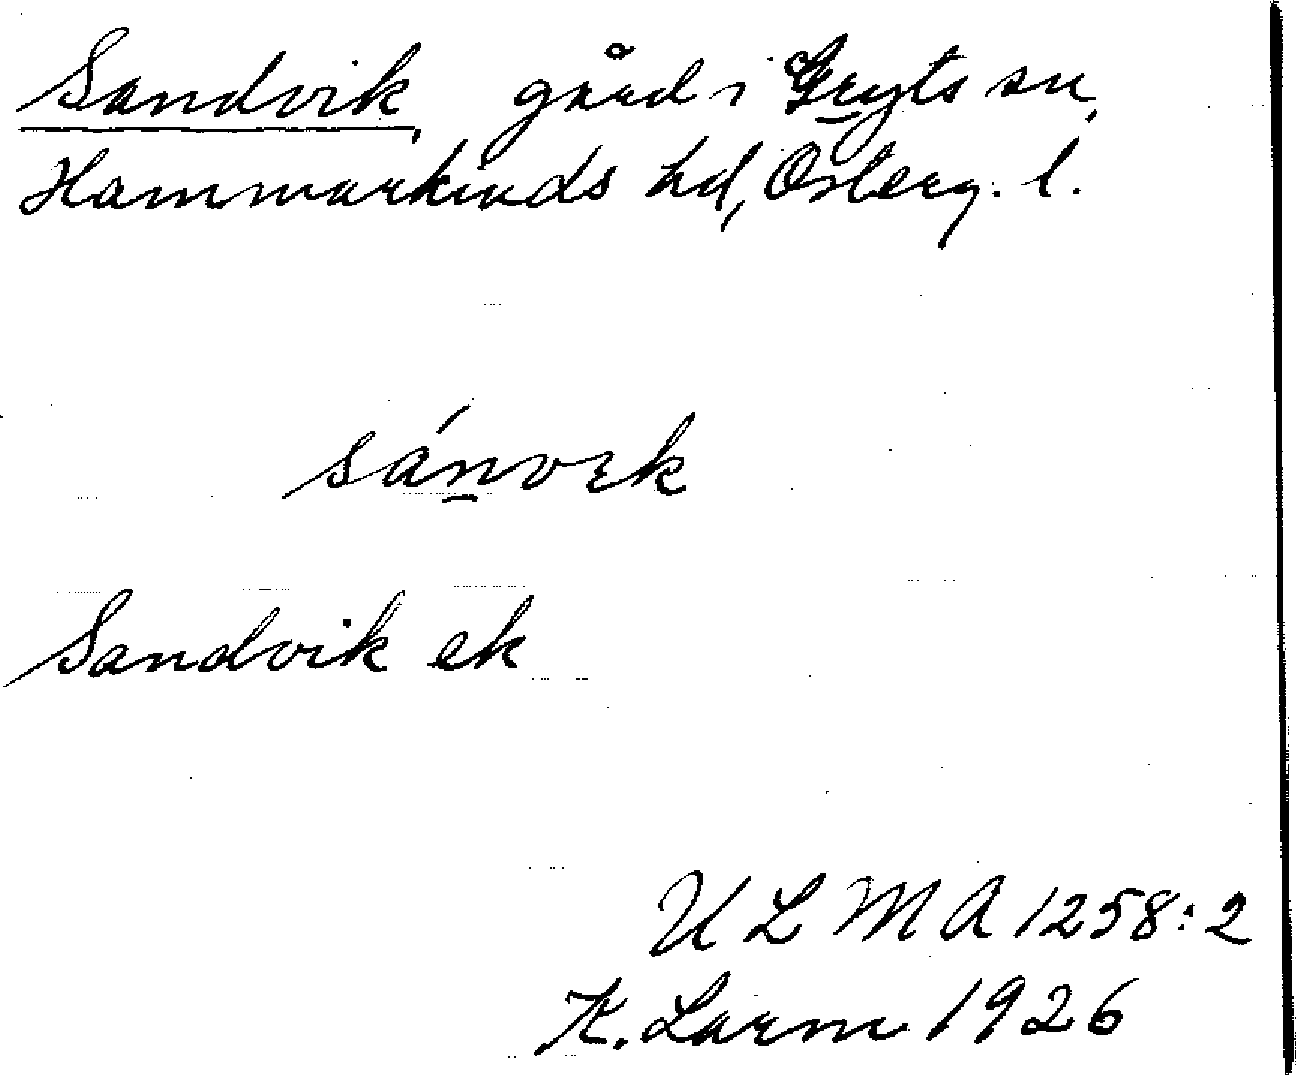 Sandvik, gård i Gryts sn,
Hammarkinds hd, Österg. l.
sánvɪk
Sandvik ek
ULMA 1258:2
K. Larm 1926